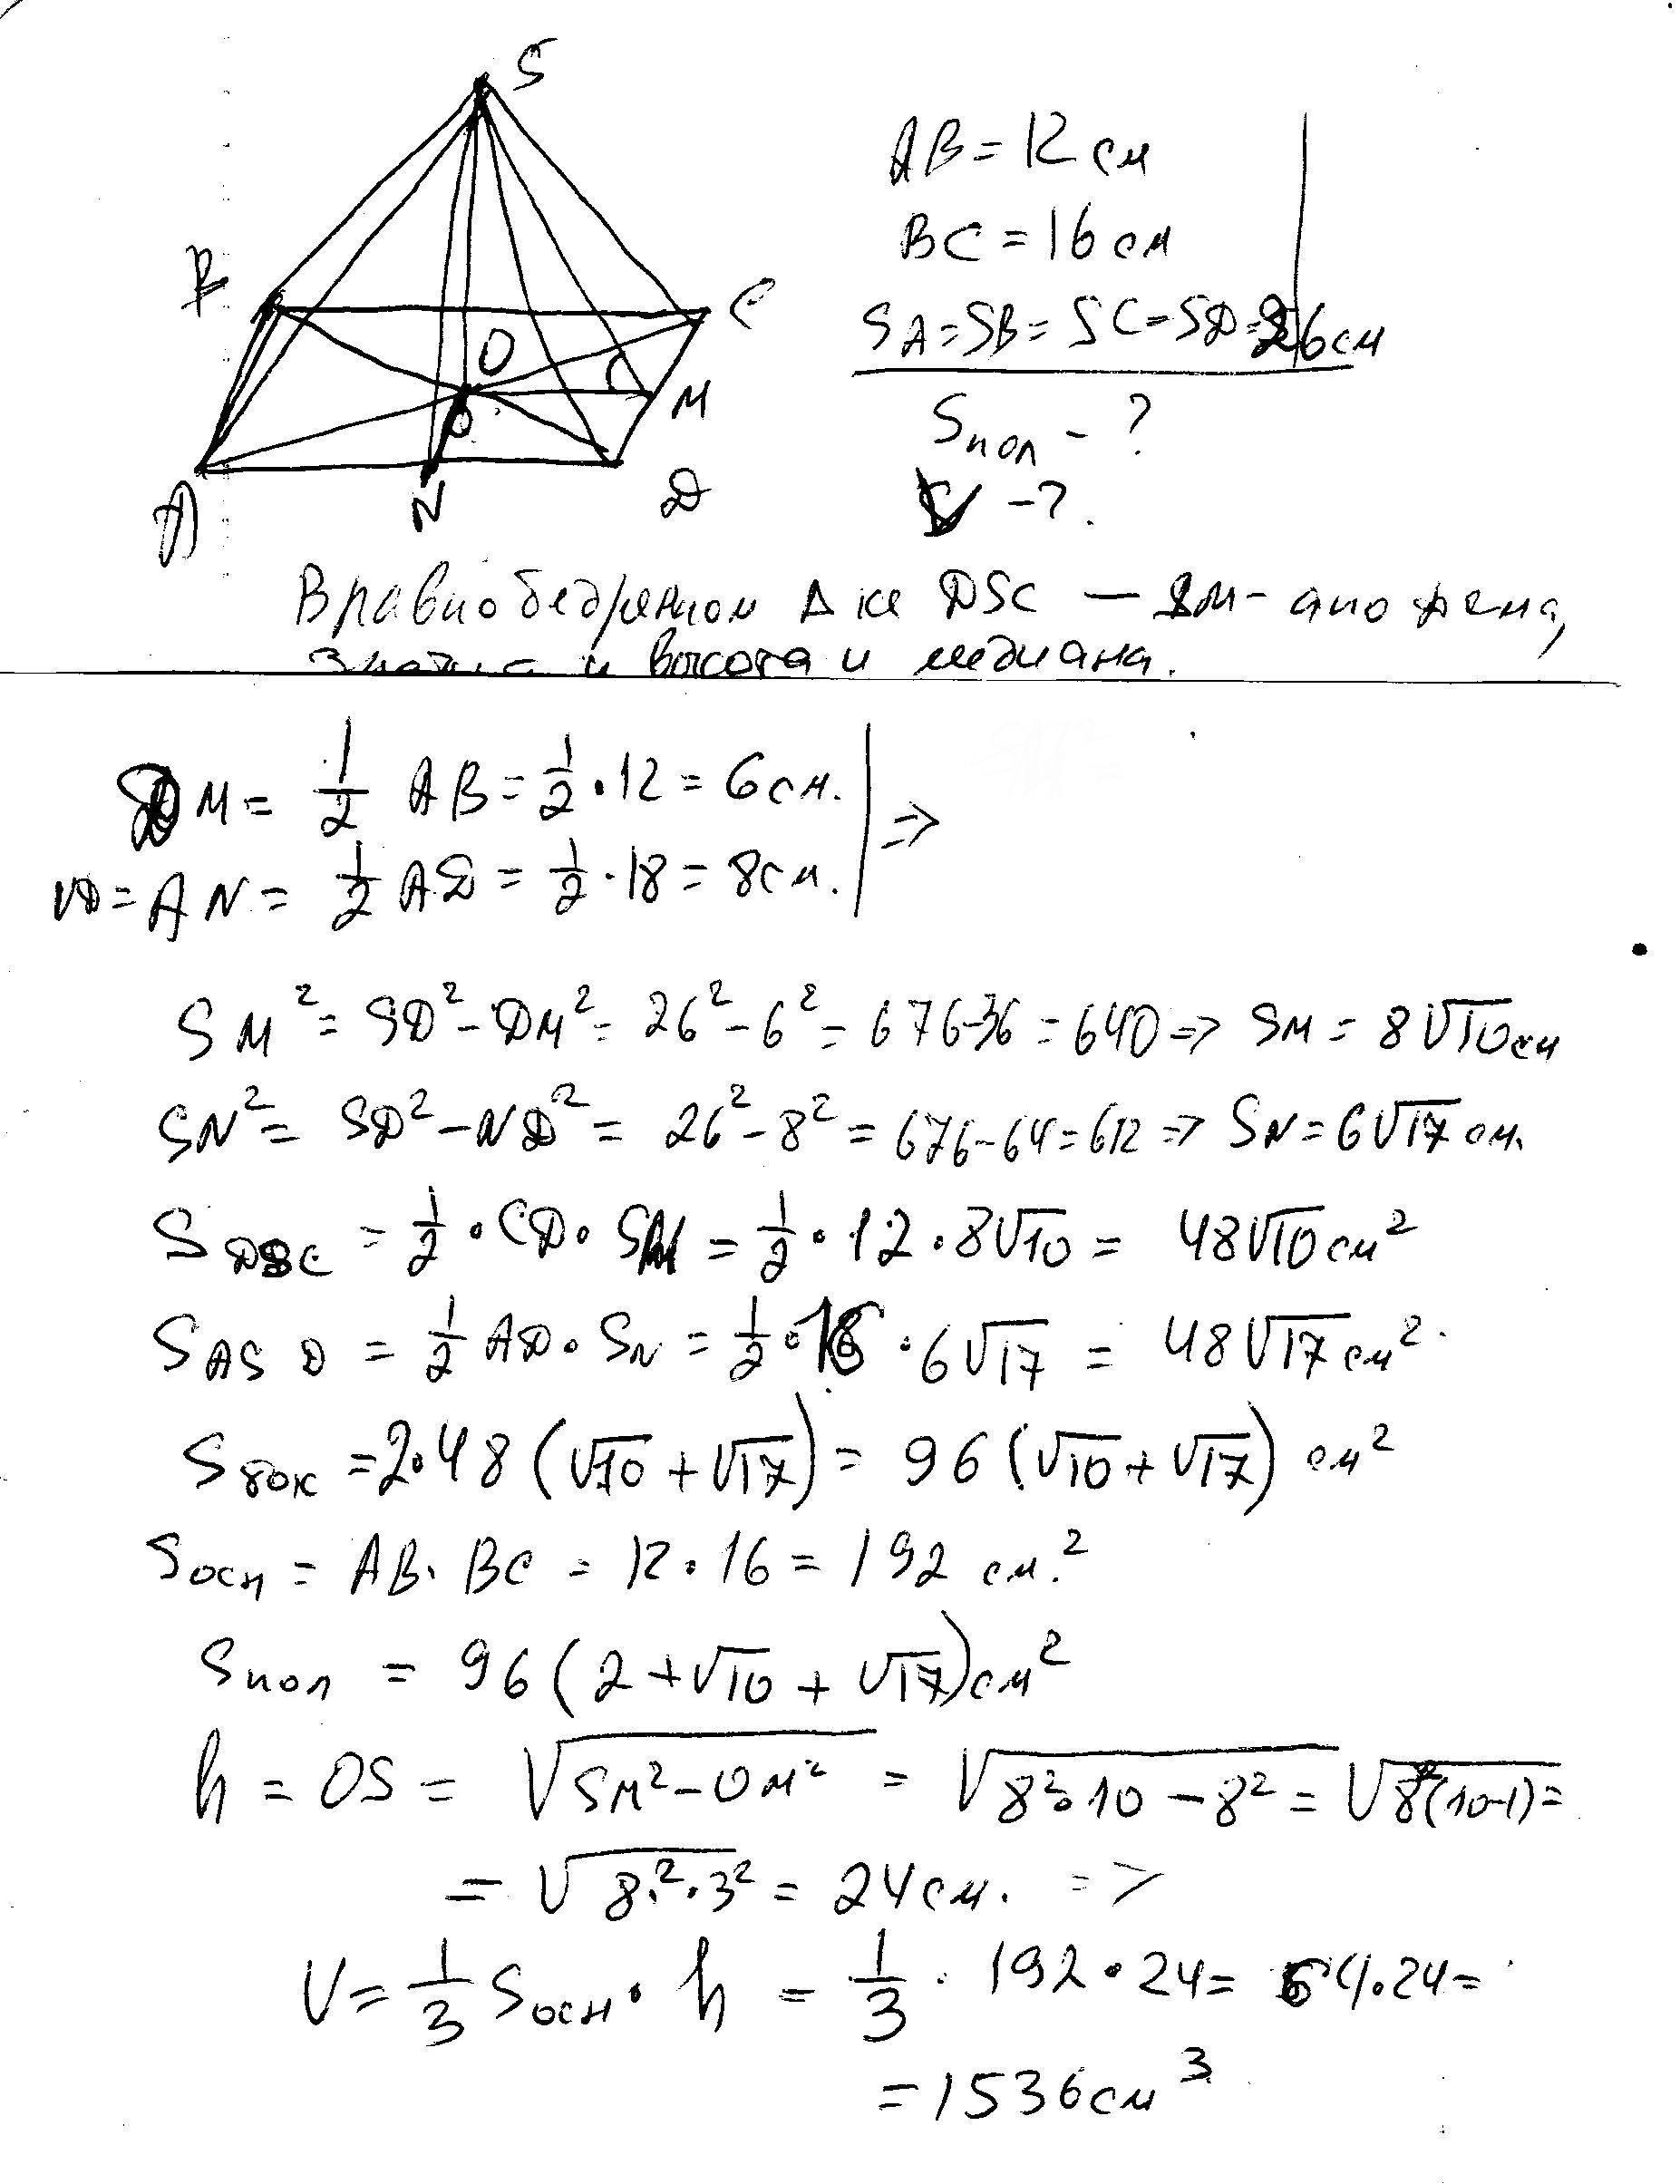 S
B
C
O
M
O
A
N
D
AB = 12 см
BC = 16 см
SA = SB = SC = SD = 26 см
Sпол - ?
V - ?.
В равнобедренном Δ ке DSC — SM - апофема,
значит и высота и медиана.
DM = 1/2 AB = 1/2 · 12 = 6 см. | =>
ND = AN = 1/2 AD = 1/2 · 18 = 8 см.
SM² = SD² - DM² = 26² - 6² = 676-36 = 640 => SM = 8√10 см
SN² = SD² - ND² = 26² - 8² = 676-64 = 612 => SN = 6√17 см.
S DSC = 1/2 · CD · SM = 1/2 · 12 · 8√10 = 48√10 см²
S ASD = 1/2 AD · SN = 1/2 · 16 · 6√17 = 48√17 см².
Sбок = 2·48 (√10 + √17) = 96 (√10 + √17) см²
Sосн = AB · BC = 12 · 16 = 192 см.²
Sпол = 96 (2 + √10 + √17) см²
h = OS = √SM² - OM² = √8²·10 - 8² = √8²(10-1) =
= √8²·3² = 24 см. =>
V = 1/3 Sосн · h = 1/3 · 192 · 24 = 64·24 =
= 1536 см³